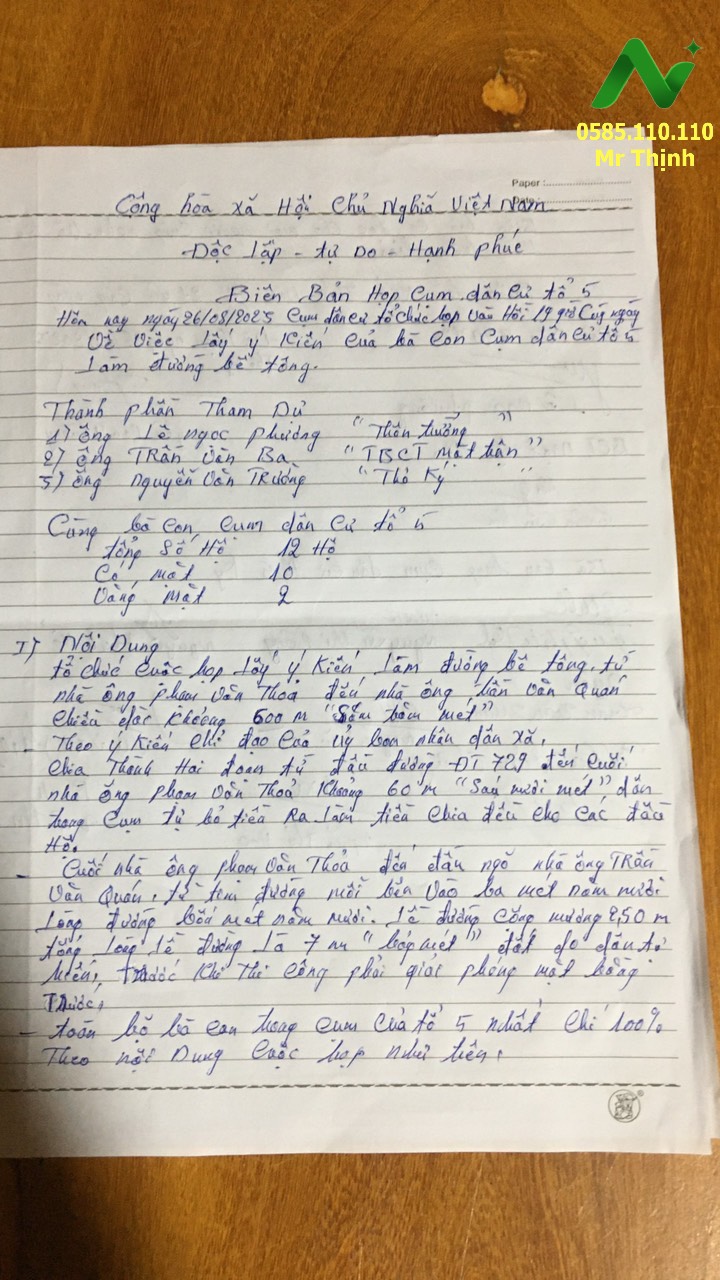 0585.110.110
Mr Thịnh
Paper :
Date :
Cộng hòa xã Hội Chủ Nghĩa Việt Nam
Độc lập - Tự Do - Hạnh phúc
Biên Bản Họp Cụm dân cư tổ 5
Hôm nay ngày 26/08/2025 Cụm dân cư tổ chức họp vào Hồi 19 giờ Cùng ngày
Về việc lấy ý kiến của bà con cụm dân cư tổ 5
Làm đường bê tông.
Thành phần Tham Dự
1) ông Lê ngọc phương "Thôn trưởng"
2) ông TRần Văn Ba "TBCT mặt trận"
3) ông nguyễn văn TRường "Thơ Ký"
Cùng bà con cụm dân cư tổ 5
tổng số Hộ 12 Hộ
Có mặt 10
Vắng mặt 2
I) Nội Dung
tổ chức cuộc họp lấy ý kiến làm đường bê tông. từ
nhà ông phạm văn Thoả đến nhà ông Trần văn Quán
chiều dài khoảng 500 m "năm trăm mét"
- Theo ý kiến chỉ đạo của uỷ ban nhân dân xã,
chia Thành Hai đoạn từ đầu đường ĐT 729 đến cuối
nhà ông phạm văn Thoả khoảng 60 m "Sáu mươi mét" dân
trong cụm tự bỏ tiền Ra làm tiền chia đều cho các đầu
Hộ.
- Cuối nhà ông phạm văn Thoả đến đầu ngõ nhà ông TRần
Văn Quán. từ tim đường mỗi bên vào ba mét năm mươi
Lòng đường bốn mét năm mươi. Lề đường cống mương 2,50 m
tổng lòng lề đường là 7 m "bảy mét" đất do dân tự
hiến, trước khi thi công phải giải phóng mặt bằng
Trước,
- toàn bộ bà con trong cụm của tổ 5 nhất chí 100%
Theo nội Dung cuộc họp như trên,